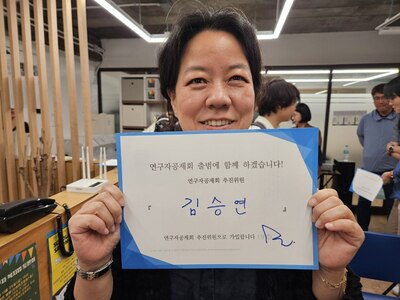 연구자공제회 출범에 함께 하겠습니다!
연구자공제회 추진위원
『 김승연 』
연구자공제회 추진위원으로 가입합니다